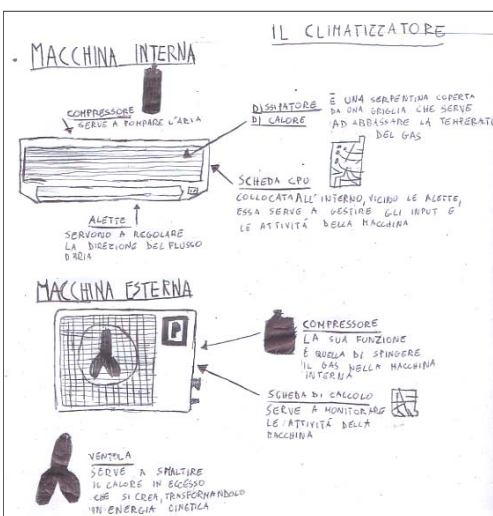 IL CLIMATIZZATORE
MACCHINA INTERNA
COMPRESSORE
SERVE A POMPARE L'ARIA
DISSIPATORE
DI CALORE
È UNA SERPENTINA COPERTA
DA UNA GRIGLIA CHE SERVE
AD ABBASSARE LA TEMPERAT
DEL GAS
SCHEDA CPU
COLLOCATA ALL'INTERNO, VICINO LE ALETTE,
ESSA SERVE A GESTIRE GLI INPUT E
LE ATTIVITÁ DELLA MACCHINA
ALETTE
SERVONO A REGOLARE
LA DIREZIONE DEL FLUSSO
D'ARIA
MACCHINA ESTERNA
P
COMPRESSORE
LA SUA FUNZIONE
È QUELLA DI SPINGERE
IL GAS NELLA MACCHINA
INTERNA
SCHEDA DI CALCOLO
SERVE A MONITORARE
LE ATTIVITÁ DELLA
MACCHINA
VENTOLA
SERVE A SMALTIRE
IL CALORE IN ECCESSO
CHE SI CREA, TRASFORMANDOLO
IN ENERGIA CINETICA